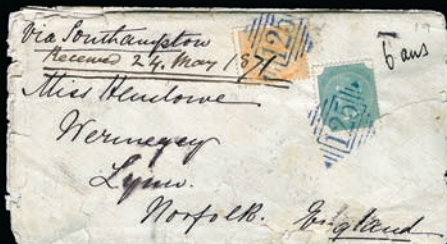 Via Southampton
Received 24. May 1871
6 ans
Miss Henslowe
Wormegey
Lynn.
Norfolk. England
125
125